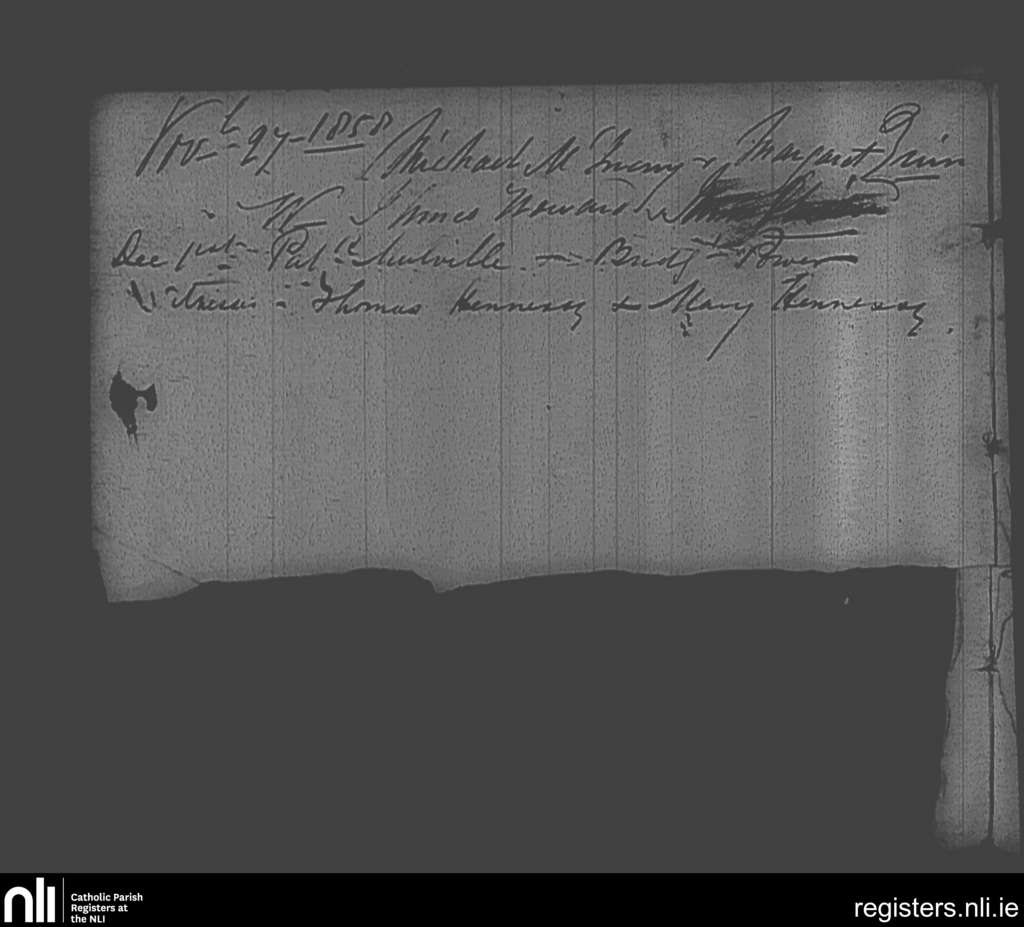 Novbr 27 - 1858 Michael McInerny & Margaret Quinn
W James Howard &
Dec 1st - Patck Mulville - & - Bridgt Power
Witnesses - Thomas Hennessy & Mary Hennessy.
nli Catholic Parish
Registers at
the NLI
registers.nli.ie